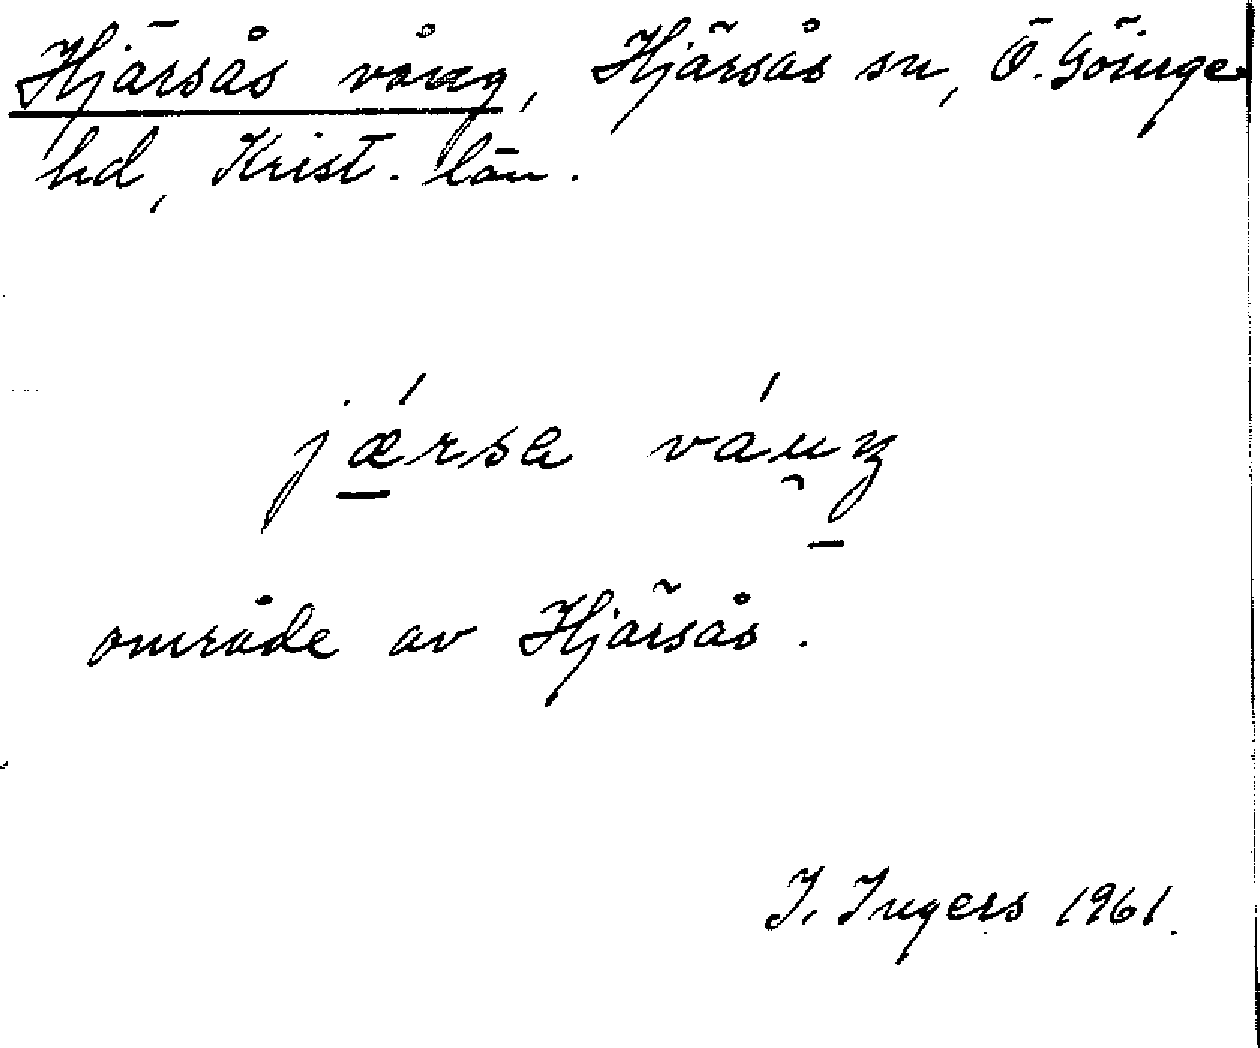 Hjärsås vång, Hjärsås sn, Ö. Göinge
hd, Krist. län.
jǽrsa váuŋ
område av Hjärsås.
I. Ingers 1961.